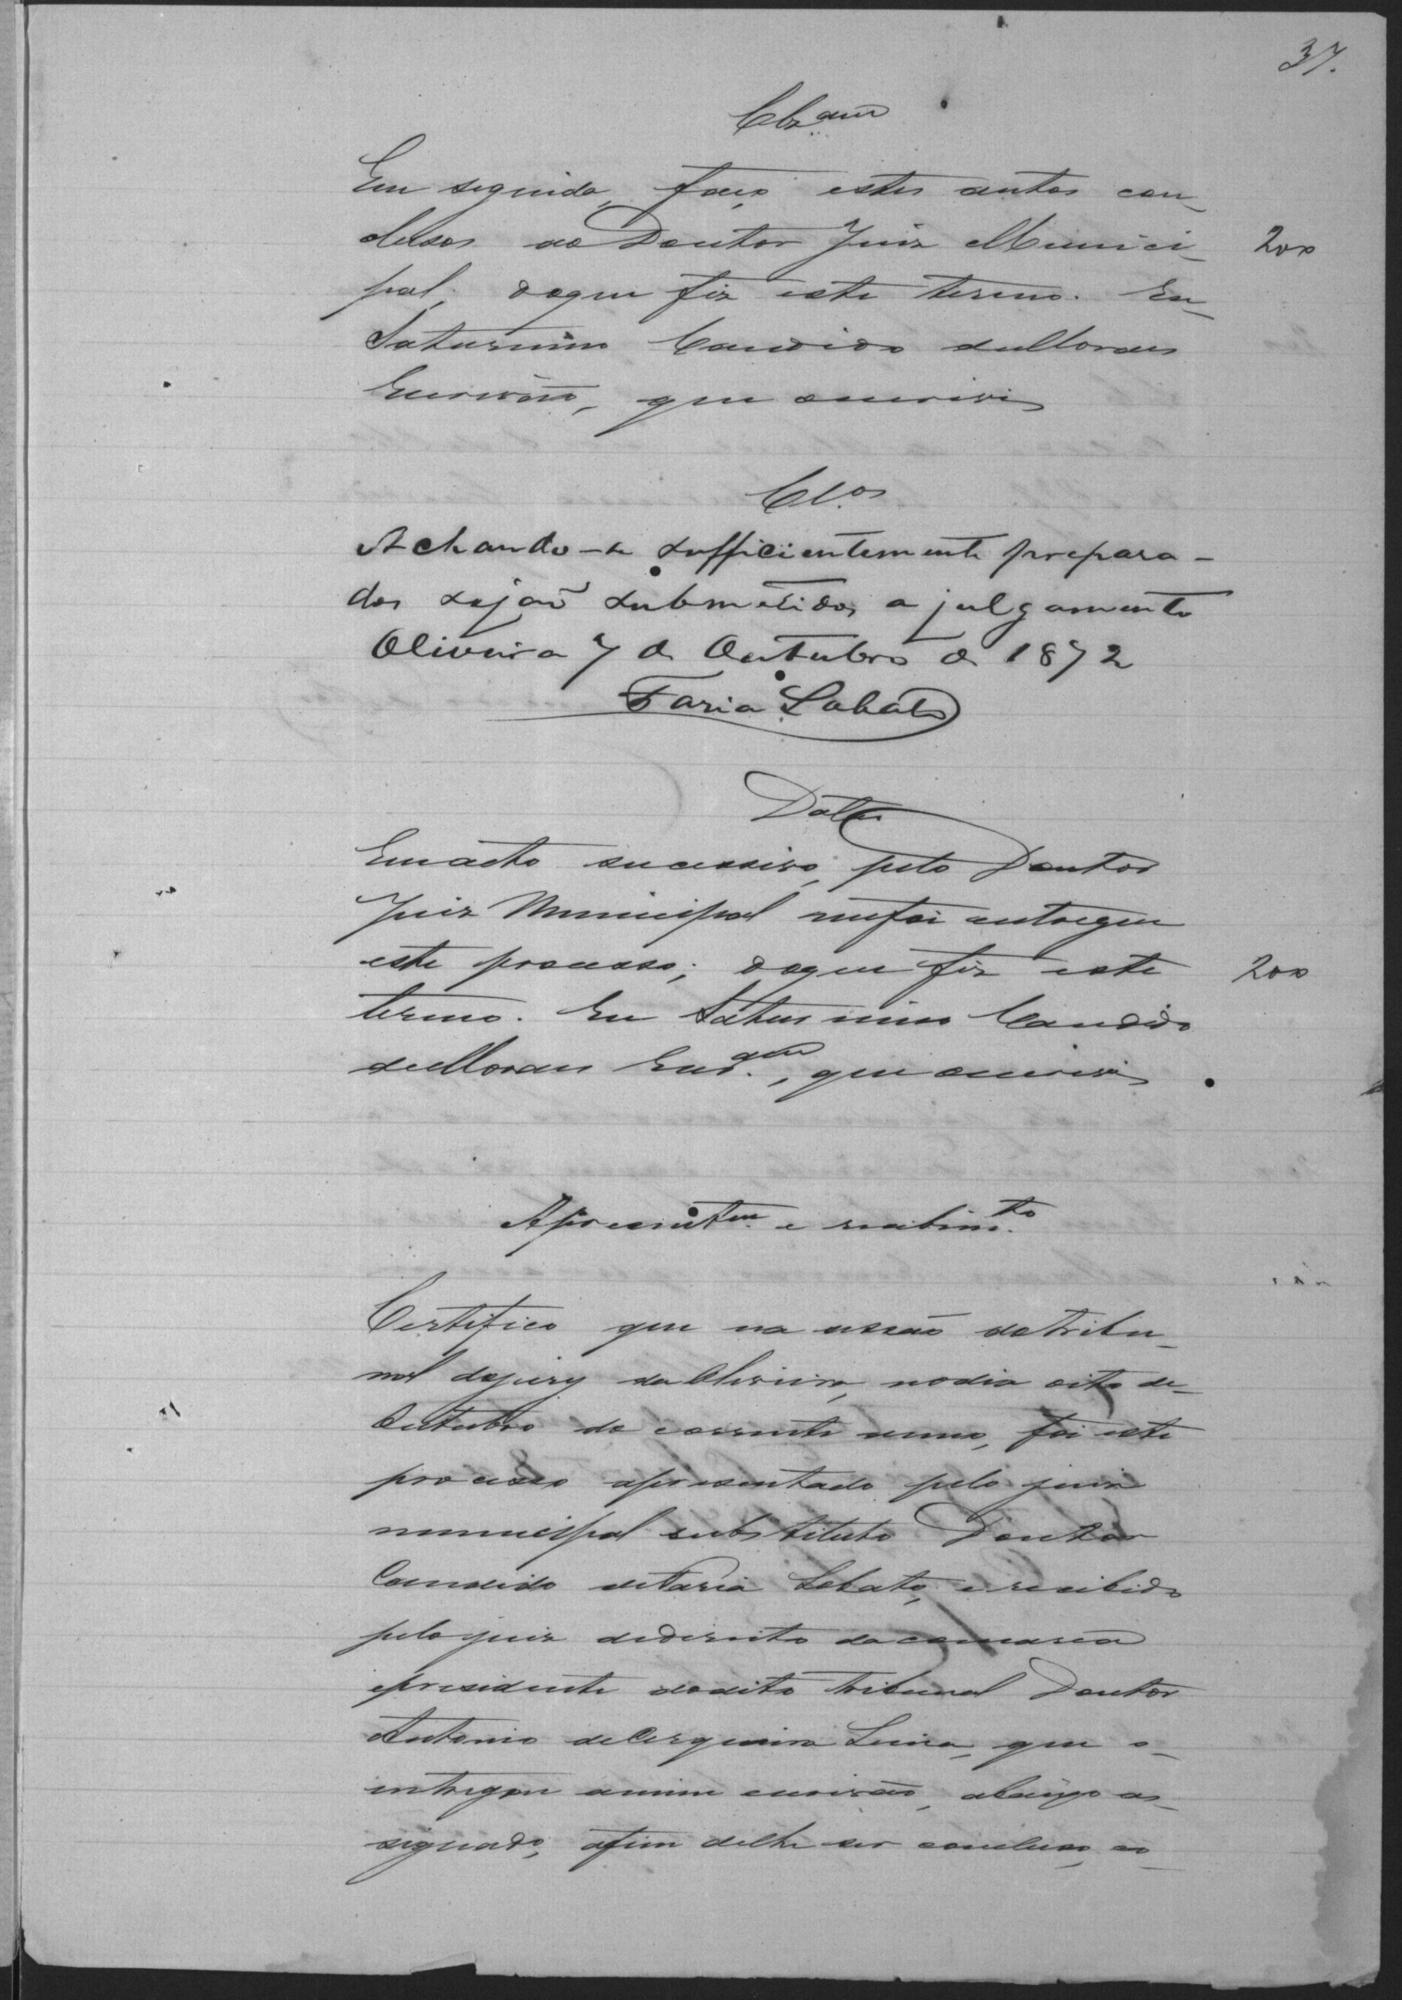 37.
Clzam
Em seguida, faço estes autos con-
clusos ao Doutor Juiz Munici-
200
pal; doque fiz este termo. Eu
Saturnino Candido deMoraes
Escrivão, que escrevi
Cl.os
Achando-se sufficientemente prepara-
dos sejaõ submetidos a julgamento
Oliveira 7 de Outubro de 1872
Faria Lobato
Data
Em acto sucessivo, pelo Doutor
Juiz Municipal mefoi entregue
este processo; doque fiz este
200
termo. Eu Saturnino Candido
deMoraes Escr.am, que escrevi
Apresentam. e recebim.to
Certifico que na sessão dotribu-
nal dojury da Oliveira, nodia oito de
Outubro do corrente anno, foi este
processo apresentado pelo juiz
municipal substituto Doutor
Candido deFaria Lobato, e recebido
pelo juiz dedireito da comarca
epresidente dodito tribunal Doutor
Antonio deCerqueira Lima, que o
entregou amim escrivão, abaixo as-
signado, afim delhe ser concluso, ao